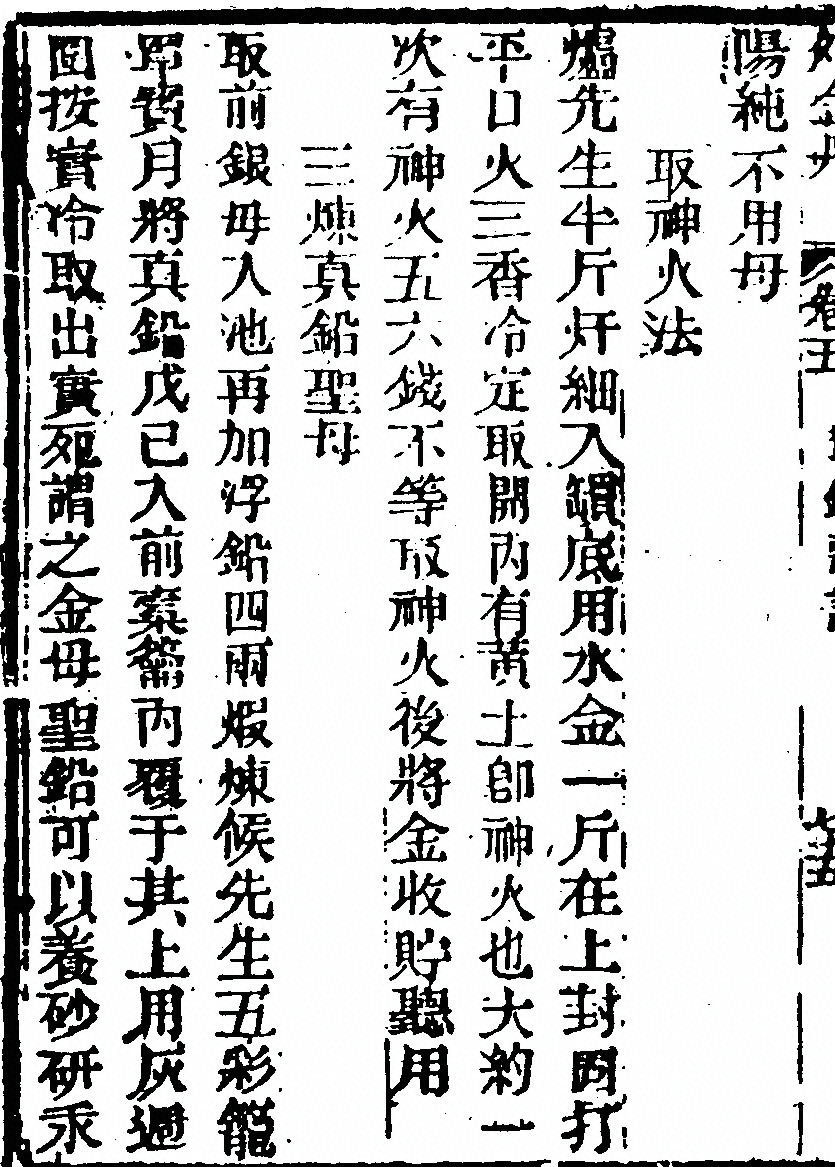 陽純不用母
取神火法
爐先生半斤研細入鑵底用水金一斤在上封固打
平口火三香冷定取開內有黃土卽神火也大約一
次有神火五六錢不等取神火後將金收貯聽用
三煉真鉛聖母
取前銀母入池再加浮鉛四兩煅煉候先生五彩籠
罩寶月將真鉛戊己入前槖籥內覆于其上用灰週
圍按實冷取出實死謂之金母聖鉛可以養砂研汞